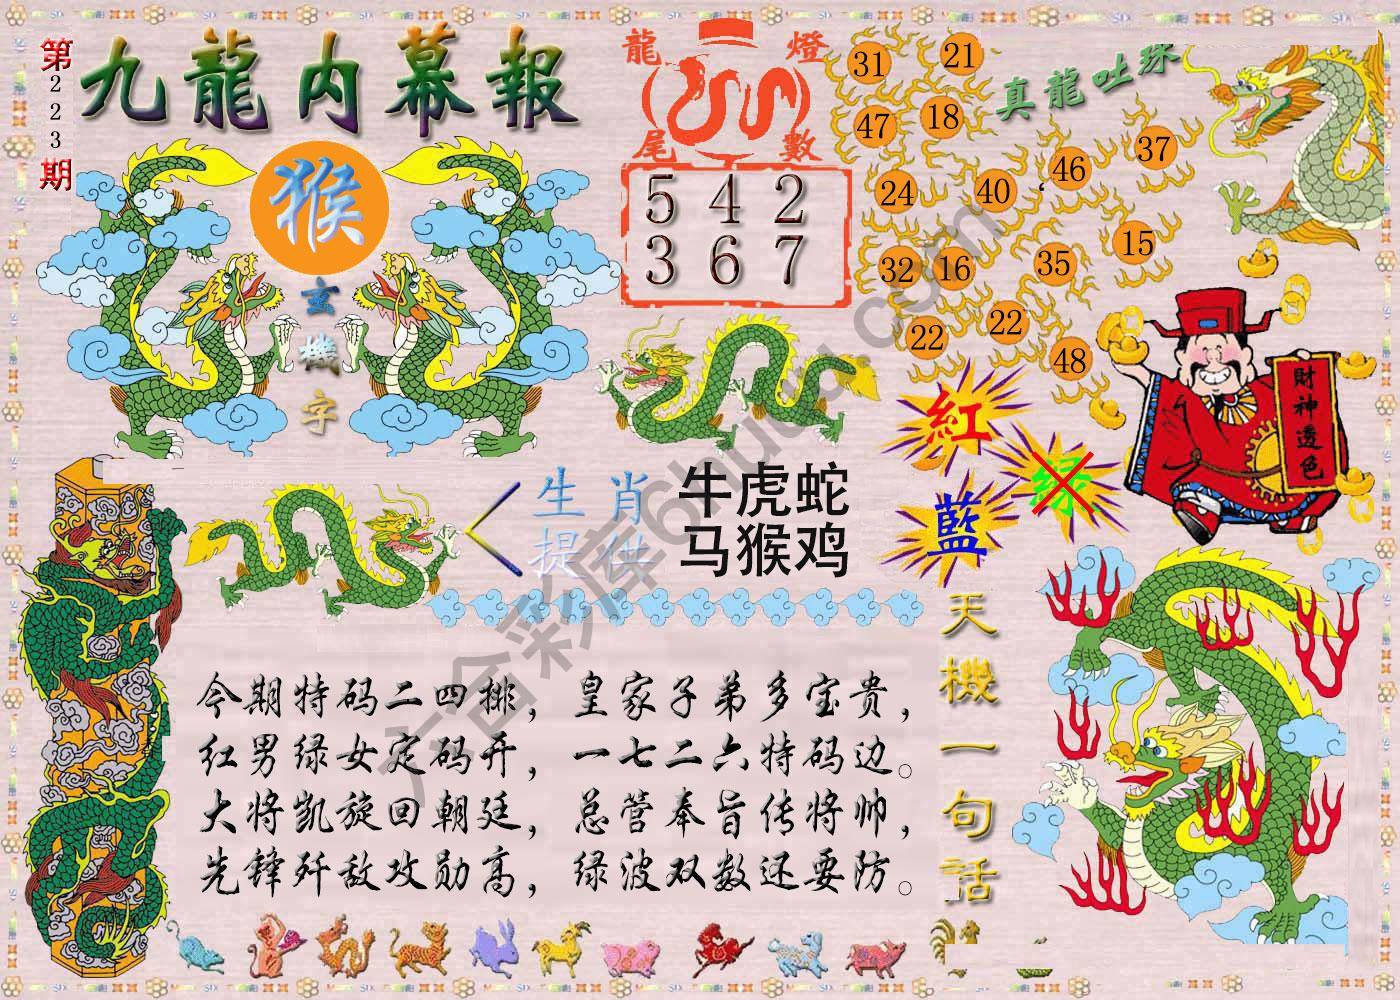 第223期
九龍内幕報
猴
玄機字
龍燈
尾數
5 4 2
3 6 7
真龍吐珠
31 21
47 18
24 40 46 37
32 16 35 15
22 22 48
財神透色
紅
绿
藍
生肖 牛虎蛇
提供 马猴鸡
天機一句話
今期特码二四排，皇家子弟多宝贵，
红男绿女定码开，一七二六特码边。
大将凯旋回朝廷，总营奉旨传将帅，
先锋歼敌攻勋高，绿波双数还要防。
六合彩库6huau.com